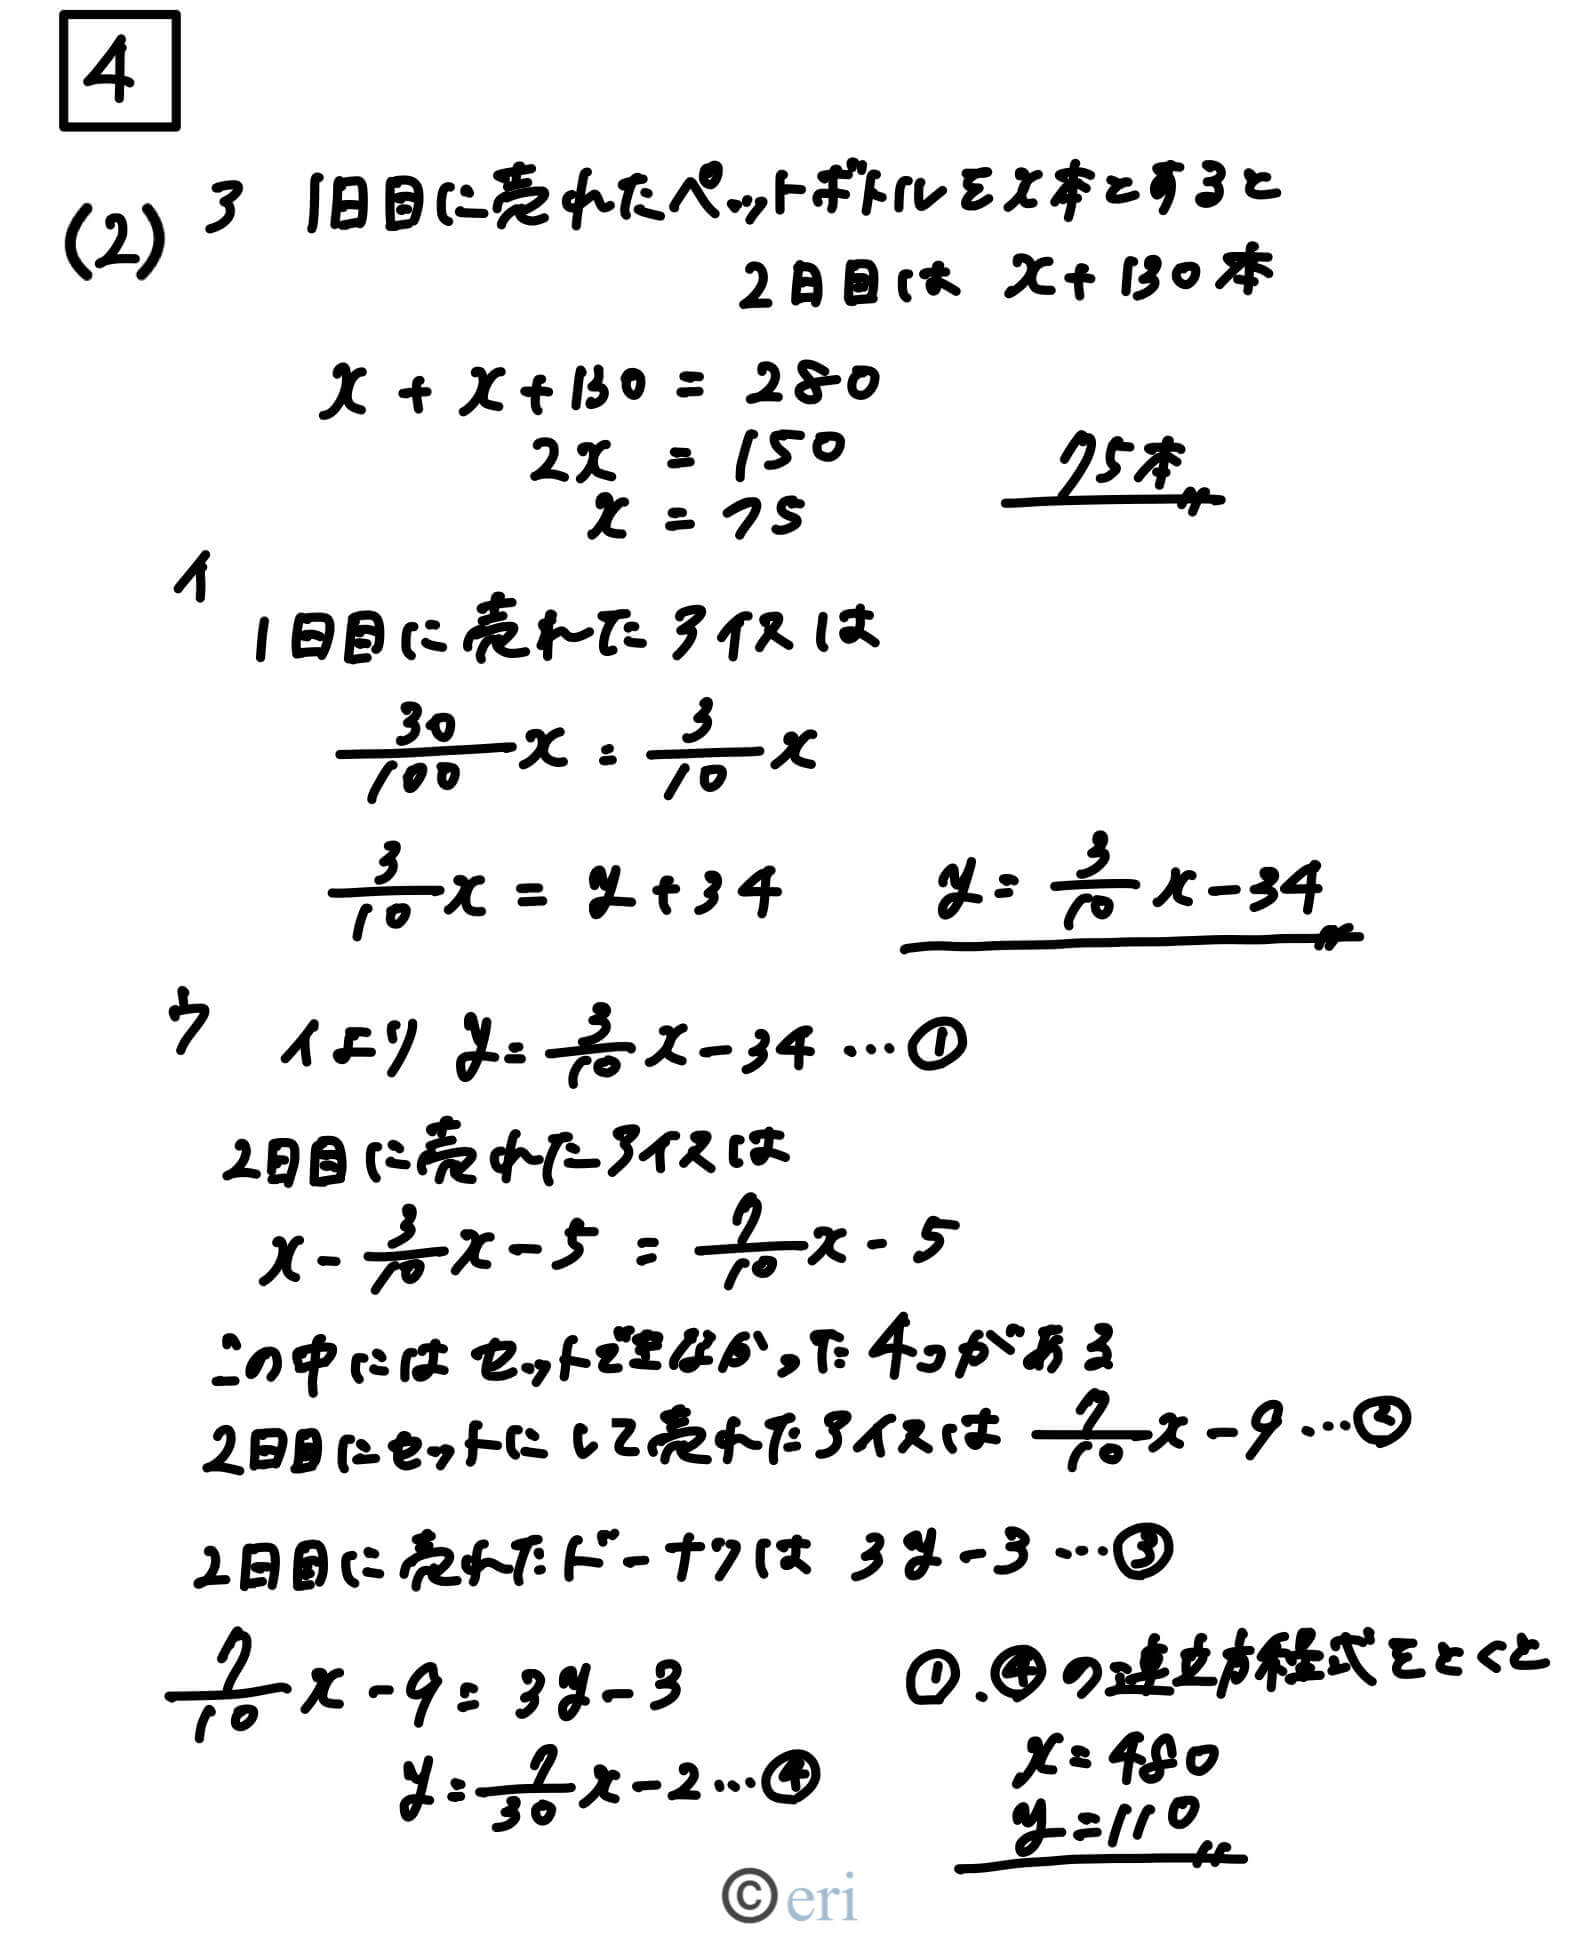 4
(2) ア 1日目に売れたペットボトルをx本とすると
2日目は x+130本
x + x + 130 = 280
2x = 150
x = 75
75本
イ
1日目に売れたアイスは
30/100 x = 3/10 x
3/10 x = y + 34 y = 3/10 x - 34
ウ イより y = 3/10 x - 34 … ①
2日目に売れたアイスは
x - 3/10 x - 5 = 7/10 x - 5
この中にはセットで売れなかった4コがある
2日目にセットにして売れたアイスは 7/10 x - 9 … ②
2日目に売れたドーナツは 3y - 3 … ③
7/10 x - 9 = 3y - 3
y = 7/30 x - 2 … ④
①.④の連立方程式をとくと
x = 480
y = 110
© eri